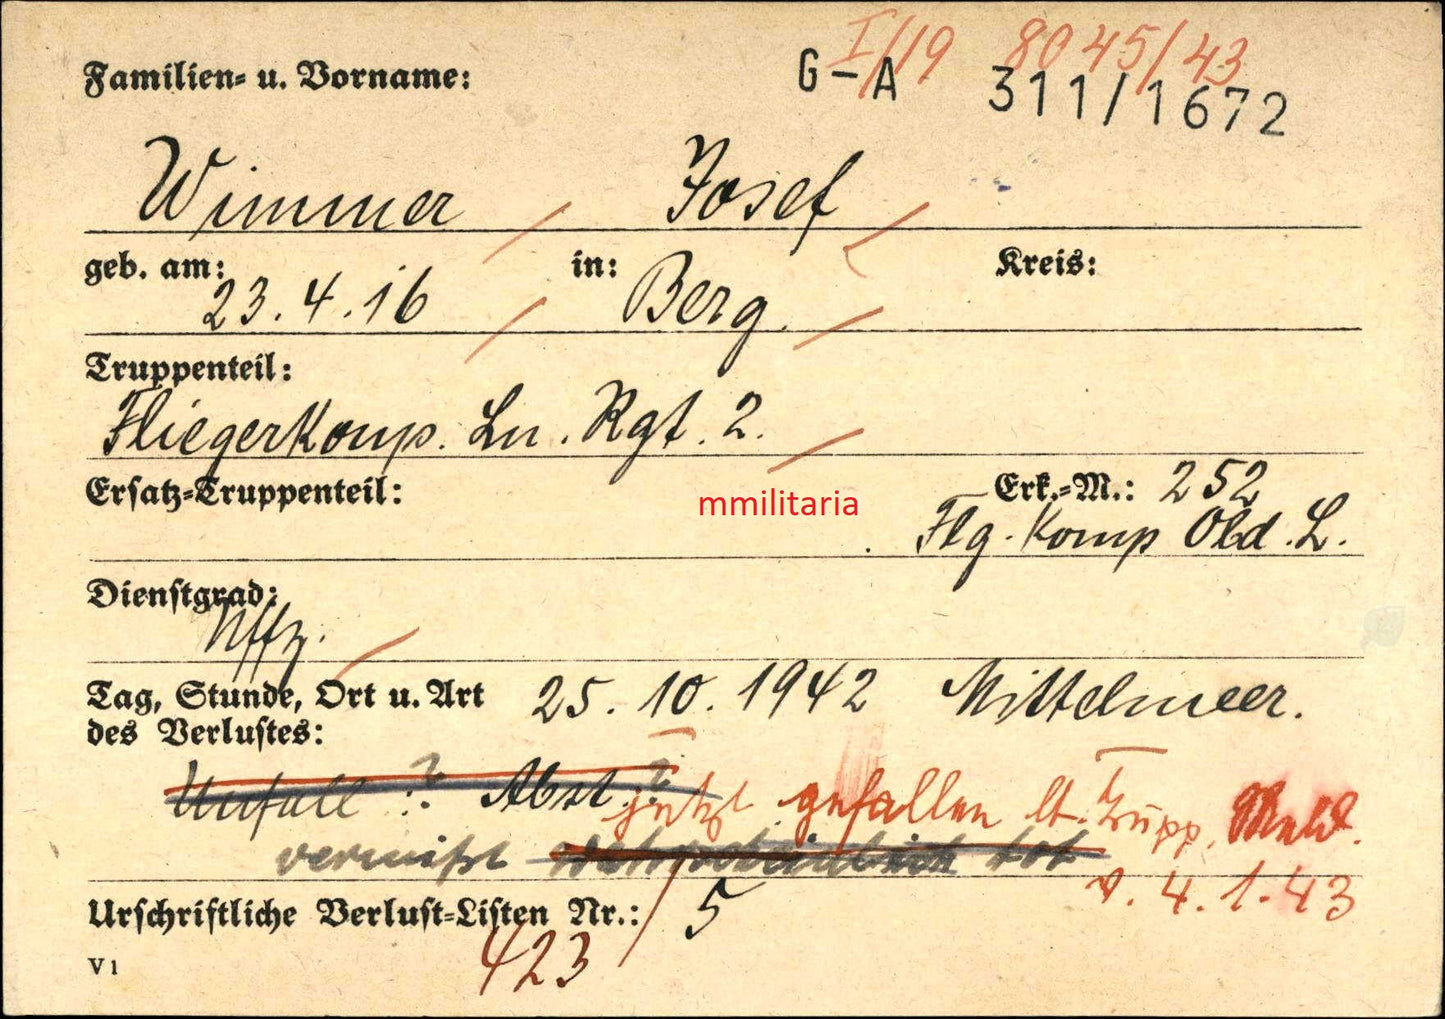 I/19 8045/43
Familien- u. Vorname: G-A 311/1672
Wimmer Josef
geb. am: 23.4.16 in: Berg. Kreis:
Truppenteil:
Fliegerkomp. Ln. Rgt. 2.
Ersatz-Truppenteil: Erk.-M.: 252
mmilitaria
Flg. Komp Obd. L.
Dienstgrad:
Uffz.
Tag, Stunde, Ort u. Art 25. 10. 1942 Mittelmeer.
des Verlustes:
Unfall ? Abst. ? jetzt gefallen lt. Trupp. Meld.
vermißt wahrscheinlich tot v. 4.1.43
Urschriftliche Verlust-Listen Nr.: 5
423
V1